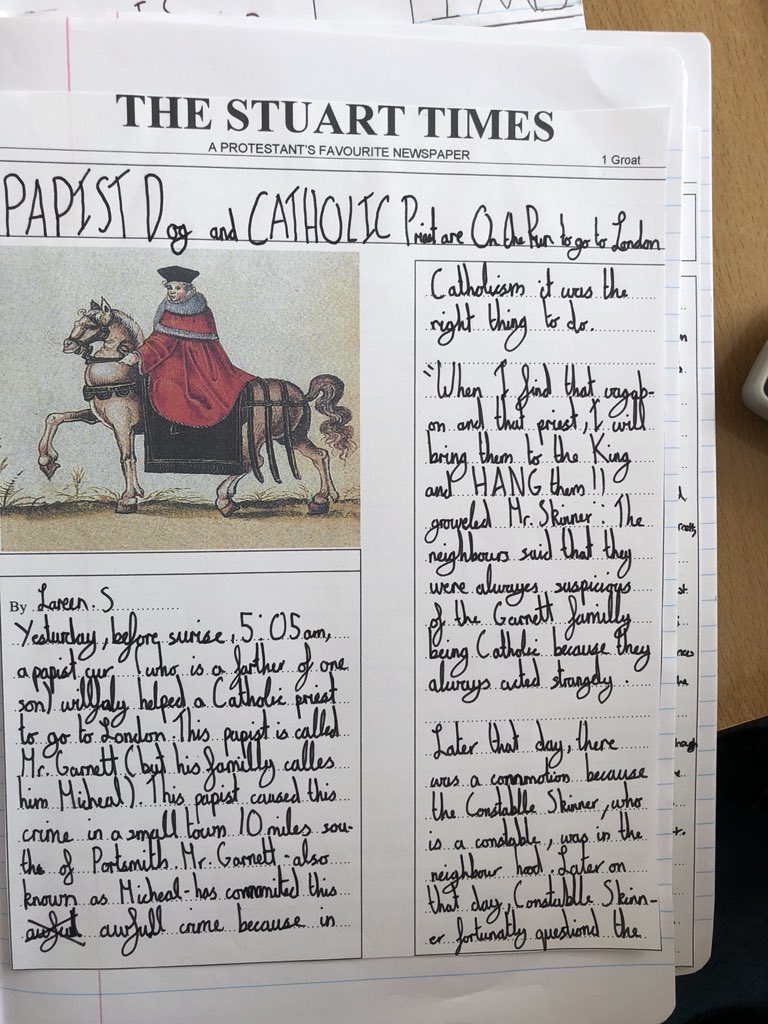 THE STUART TIMES
A PROTESTANT'S FAVOURITE NEWSPAPER
1 Groat
PAPIST Dog and CATHOLIC Priest are On the Run to go to London
By Lareen. S
Yesterday, before surise, 5:05am,
a papist cur (who is a farther of one
son) willfaly helped a Catholic priest
to go to London. This papist is called
Mr. Garnett (but his familly calles
him Micheal). This papist caused this
crime in a small town 10 miles sou-
the of Portsmith. Mr. Garnett - also
known as Micheal - has commited this
awfull crime because in
Catholicism it was the
right thing to do.
"When I find that vagab-
on and that priest, I will
bring them to the King
and HANG them!!
groweled Mr. Skinner: The
neighbours said that they
were alwayes suspicious
of the Garnett familly
being Catholic because they
always acted strangely.
Later that day, there
was a commotion because
the Constablle Skinner, who
is a constable, was in the
neighbour hood. Later on
that day, Constablle Skinn-
er fortunatly questiond the